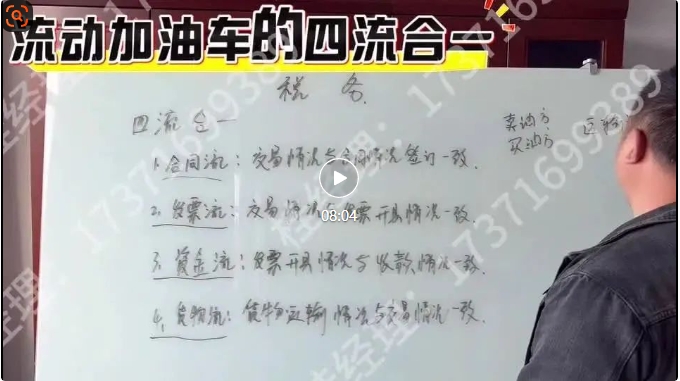 流动加油车的四流合一
税务
四流合一
卖油方
买油方
1、合同流：交易情况与合同情况签订一致.
2、发票流：交易情况与发票开具情况一致.
08:04
3、资金流：发票开具情况与收款情况一致.
4、货物流：货物运输情况与交易情况一致.
桂经理：17371699389